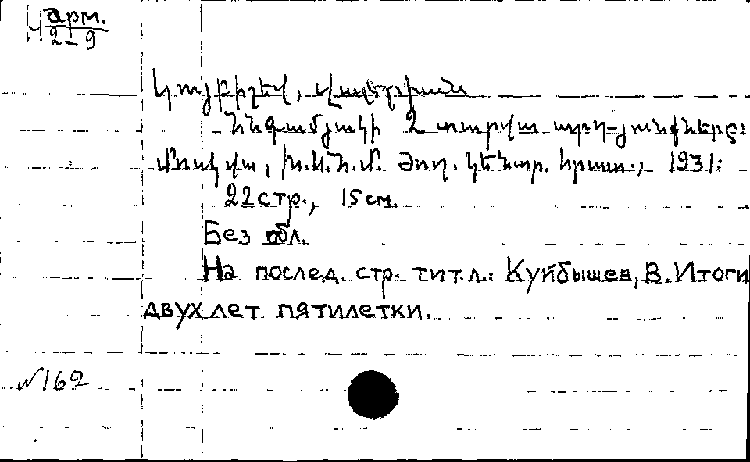 Н арм.
2-9
Կույբիշեվ, Վալերիան
Հնգամյակի 2 տարվա
Մոսկվա, Խ.Ս.Հ.Մ. Ժող. կենտր. հրատ., 1931։
22 стр., 15 см.
Без обл.
На послед. стр. титл.: Куйбышев, В. Итоги
двух лет пятилетки.
№162